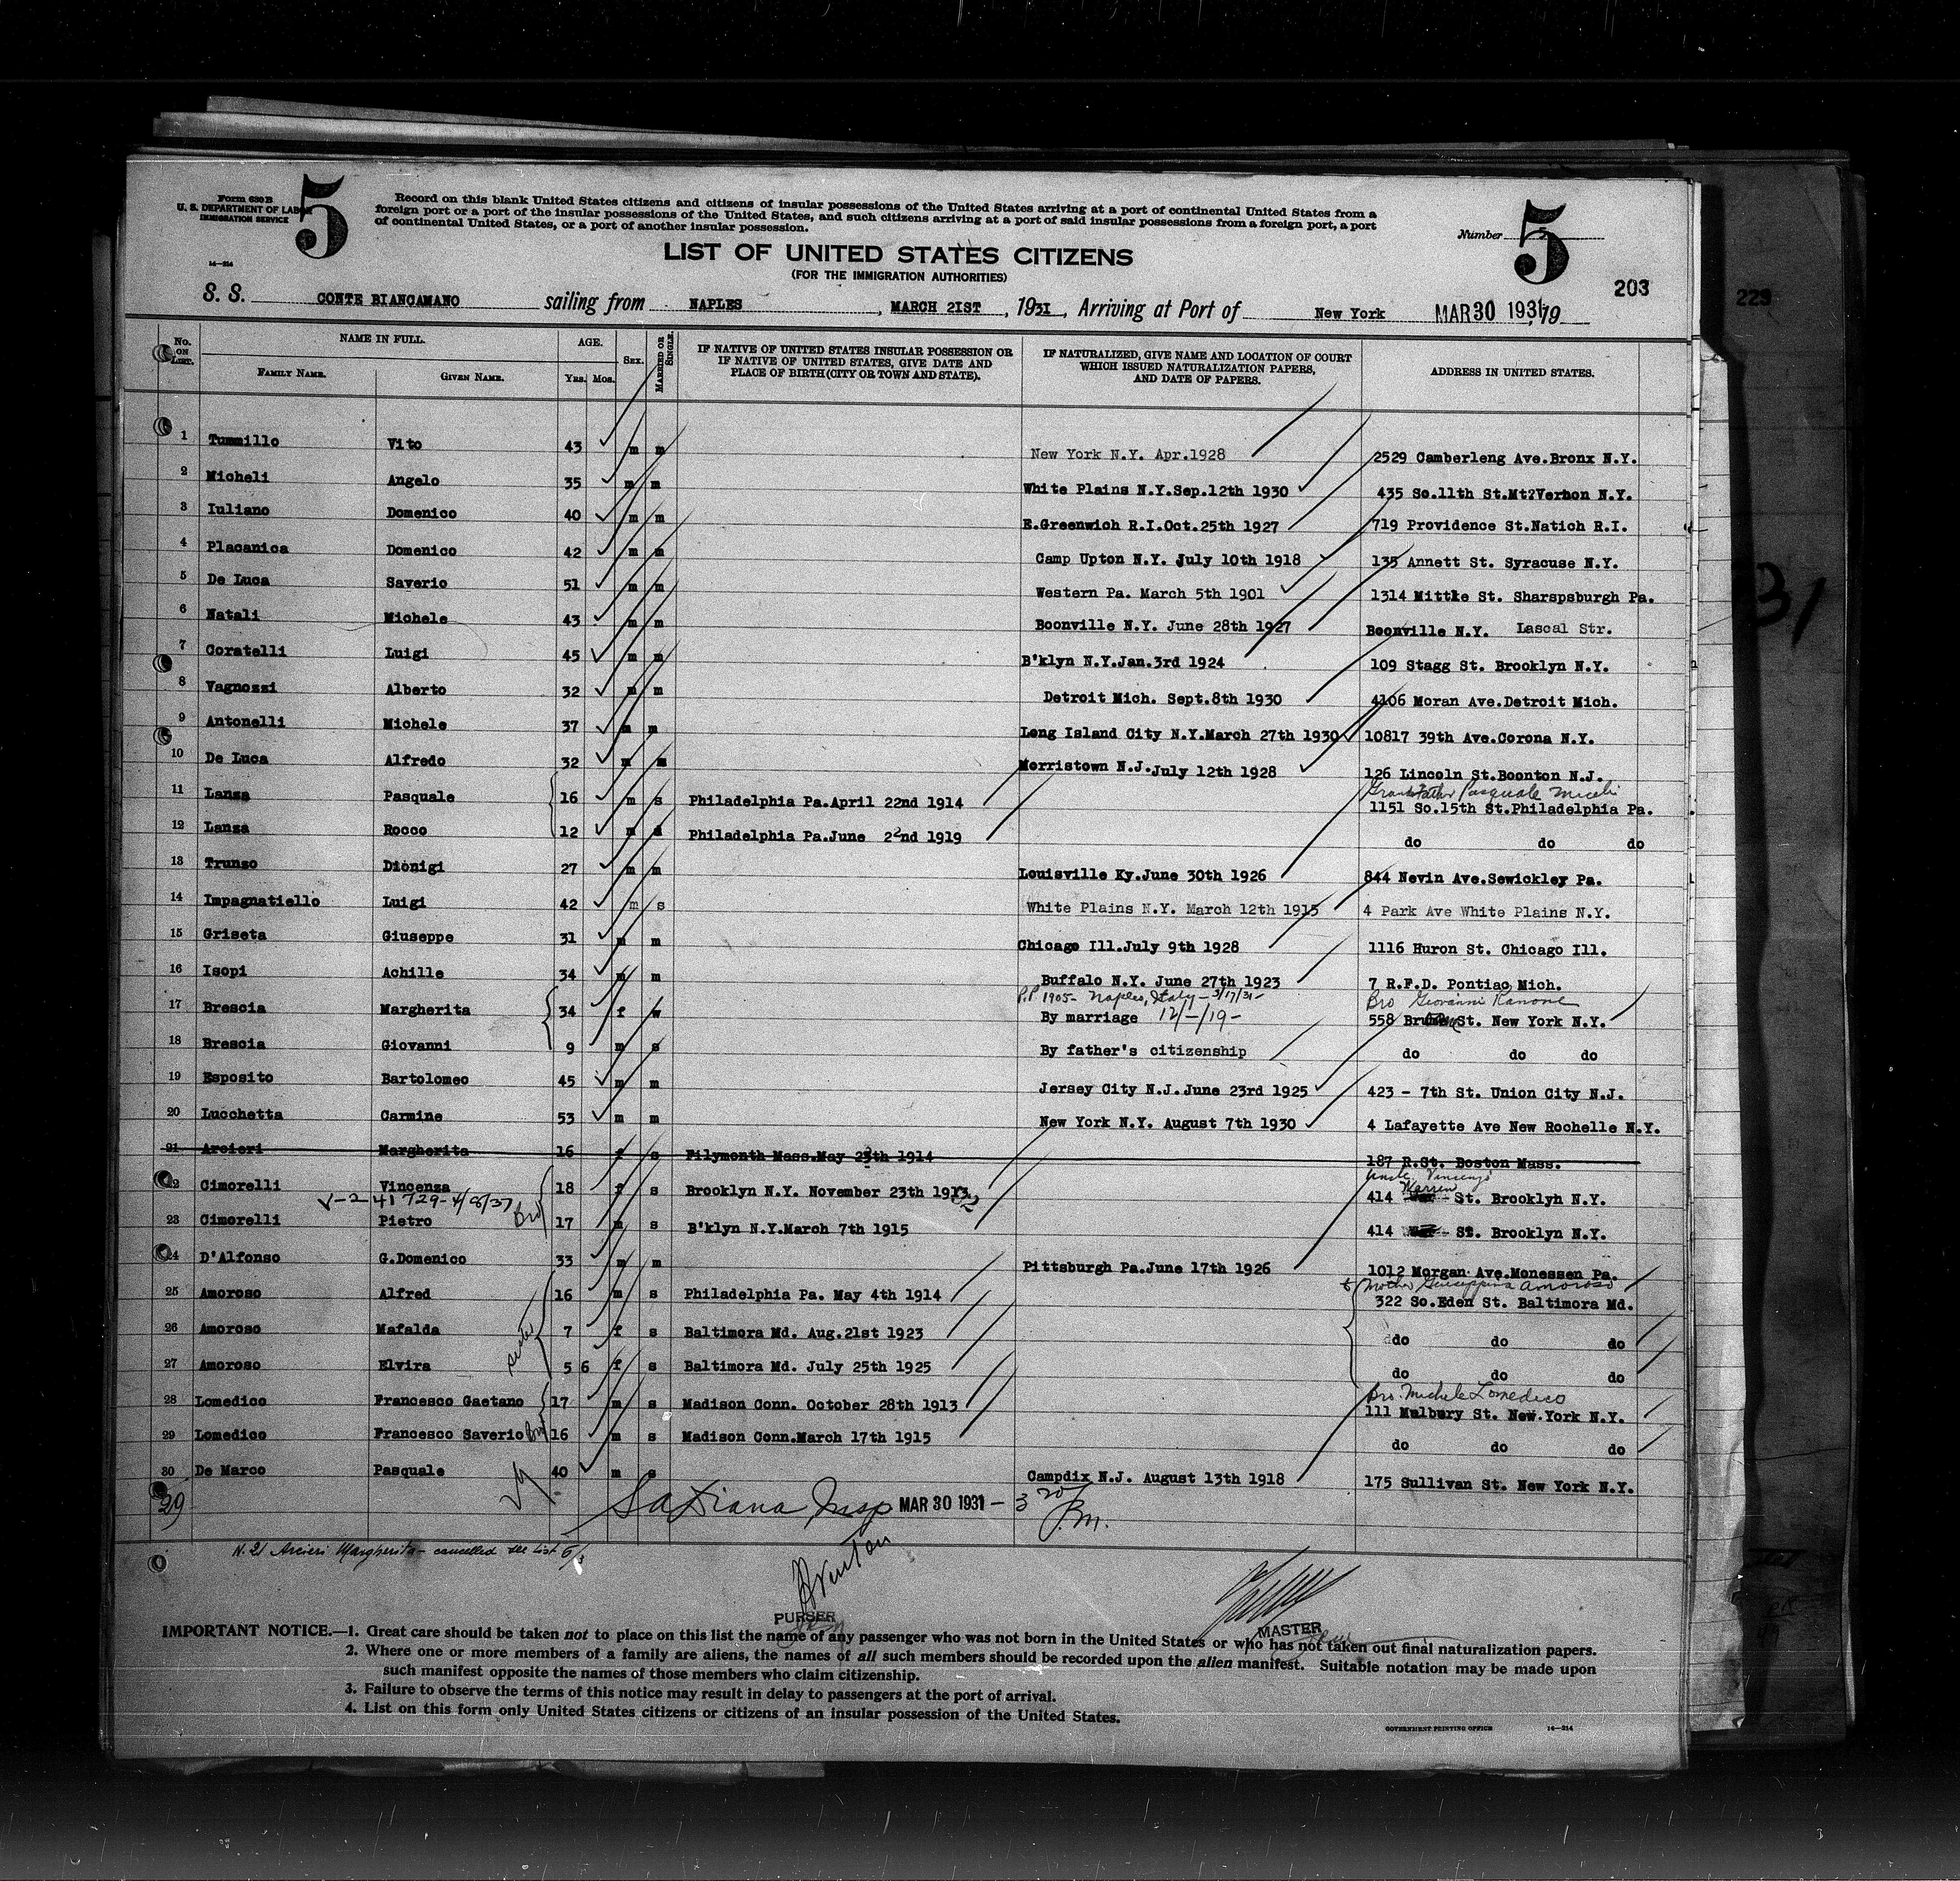 Form 630 B
U. S. DEPARTMENT OF LABOR
IMMIGRATION SERVICE
14—214
5
Record on this blank United States citizens and citizens of insular possessions of the United States arriving at a port of continental United States from a
foreign port or a port of the insular possessions of the United States, and such citizens arriving at a port of said insular possessions from a foreign port, a port
of continental United States, or a port of another insular possession.
Number 5
5
LIST OF UNITED STATES CITIZENS
(FOR THE IMMIGRATION AUTHORITIES)
203
229
S. S. CONTE BIANCAMANO sailing from NAPLES, MARCH 21ST, 1931, Arriving at Port of New York MAR 30 1931, 19
No. ON LIST. NAME IN FULL. FAMILY NAME. GIVEN NAME. AGE. Yrs. Mos. SEX. MARRIED OR SINGLE. IF NATIVE OF UNITED STATES INSULAR POSSESSION OR IF NATIVE OF UNITED STATES, GIVE DATE AND PLACE OF BIRTH (CITY OR TOWN AND STATE). IF NATURALIZED, GIVE NAME AND LOCATION OF COURT WHICH ISSUED NATURALIZATION PAPERS, AND DATE OF PAPERS. ADDRESS IN UNITED STATES.
1 Tummillo Vito 43 m m New York N.Y. Apr.1928 2529 Camberleng Ave.Bronx N.Y.
2 Micheli Angelo 35 m m White Plains N.Y.Sep.12th 1930 435 So.11th St.Mt?Vernon N.Y.
3 Iuliano Domenico 40 m m E.Greenwich R.I.Oct.25th 1927 719 Providence St.Natich R.I.
4 Placanica Domenico 42 m m Camp Upton N.Y. July 10th 1918 135 Annett St. Syracuse N.Y.
5 De Luca Saverio 51 m m Western Pa. March 5th 1901 1314 Mittke St. Sharspsburgh Pa.
6 Natali Michele 43 m m Boonville N.Y. June 28th 1927 Boonville N.Y. Lascal Str.
7 Coratelli Luigi 45 m m B'klyn N.Y.Jan.3rd 1924 109 Stagg St. Brooklyn N.Y.
8 Vagnozzi Alberto 32 m m Detroit Mich. Sept.8th 1930 4106 Moran Ave.Detroit Mich.
9 Antonelli Michele 37 m m Long Island City N.Y.March 27th 1930 10817 39th Ave.Corona N.Y.
10 De Luca Alfredo 32 m m Morristown N.J.July 12th 1928 126 Lincoln St.Boonton N.J.
Grandfather Pasquale Miceli
11 Lanza Pasquale 16 m s Philadelphia Pa.April 22nd 1914 1151 So.15th St.Philadelphia Pa.
12 Lanza Rocco 12 m s Philadelphia Pa.June 22nd 1919 do do do
13 Trunzo Dionigi 27 m m Louisville Ky.June 30th 1926 844 Nevin Ave.Sewickley Pa.
14 Impagnatiello Luigi 42 m s White Plains N.Y. March 12th 1915 4 Park Ave White Plains N.Y.
15 Griseta Giuseppe 31 m m Chicago Ill.July 9th 1928 1116 Huron St. Chicago Ill.
16 Isopi Achille 34 m m Buffalo N.Y. June 27th 1923 7 R.F.D. Pontiac Mich.
P.P 1905- Naples, Italy - 3/17/31- Bro Giovanni Ranone
17 Brescia Margherita 34 f w By marriage 12/-/19- 558 St. New York N.Y.
18 Brescia Giovanni 9 m s By father's citizenship do do do
19 Esposito Bartolomeo 45 m m Jersey City N.J.June 23rd 1925 423 - 7th St. Union City N.J.
20 Lucchetta Carmine 53 m m New York N.Y. August 7th 1930 4 Lafayette Ave New Rochelle N.Y.
21 Arcieri Margherita 16 f s Pilymonth Mass.May 23th 1914 187 R.St. Boston Mass.
Uncle Vincenzo
22 Cimorelli Vincenza 18 f s Brooklyn N.Y. November 23th 1913 414 Warren St. Brooklyn N.Y.
V-2 41 729-4/8/37 Bro
23 Cimorelli Pietro 17 m s B'klyn N.Y.March 7th 1915 414 St. Brooklyn N.Y.
24 D'Alfonso G.Domenico 33 m m Pittsburgh Pa.June 17th 1926 1012 Morgan Ave.Monessen Pa.
Mother Giuseppina Amoroso
25 Amoroso Alfred 16 m s Philadelphia Pa. May 4th 1914 322 So.Eden St. Baltimora Md.
26 Amoroso Mafalda 7 f s Baltimora Md. Aug.21st 1923 do do do
sister
27 Amoroso Elvira 5 6 f s Baltimora Md. July 25th 1925 do do do
Bro. Michele Lomedico
28 Lomedico Francesco Gaetano 17 m s Madison Conn. October 28th 1913 111 Mulbury St. New York N.Y.
29 Lomedico Francesco Saverio Bro 16 m s Madison Conn.March 17th 1915 do do do
30 De Marco Pasquale 40 m s Campdix N.J. August 13th 1918 175 Sullivan St. New York N.Y.
29 Insp MAR 30 1931 - 3 20 P.m.
N. 21 Arcieri Margherita - cancelled see list 5/
PURSER
MASTER
IMPORTANT NOTICE.—1. Great care should be taken not to place on this list the name of any passenger who was not born in the United States or who has not taken out final naturalization papers.
2. Where one or more members of a family are aliens, the names of all such members should be recorded upon the alien manifest. Suitable notation may be made upon
such manifest opposite the names of those members who claim citizenship.
3. Failure to observe the terms of this notice may result in delay to passengers at the port of arrival.
4. List on this form only United States citizens or citizens of an insular possession of the United States.
GOVERNMENT PRINTING OFFICE 14—214